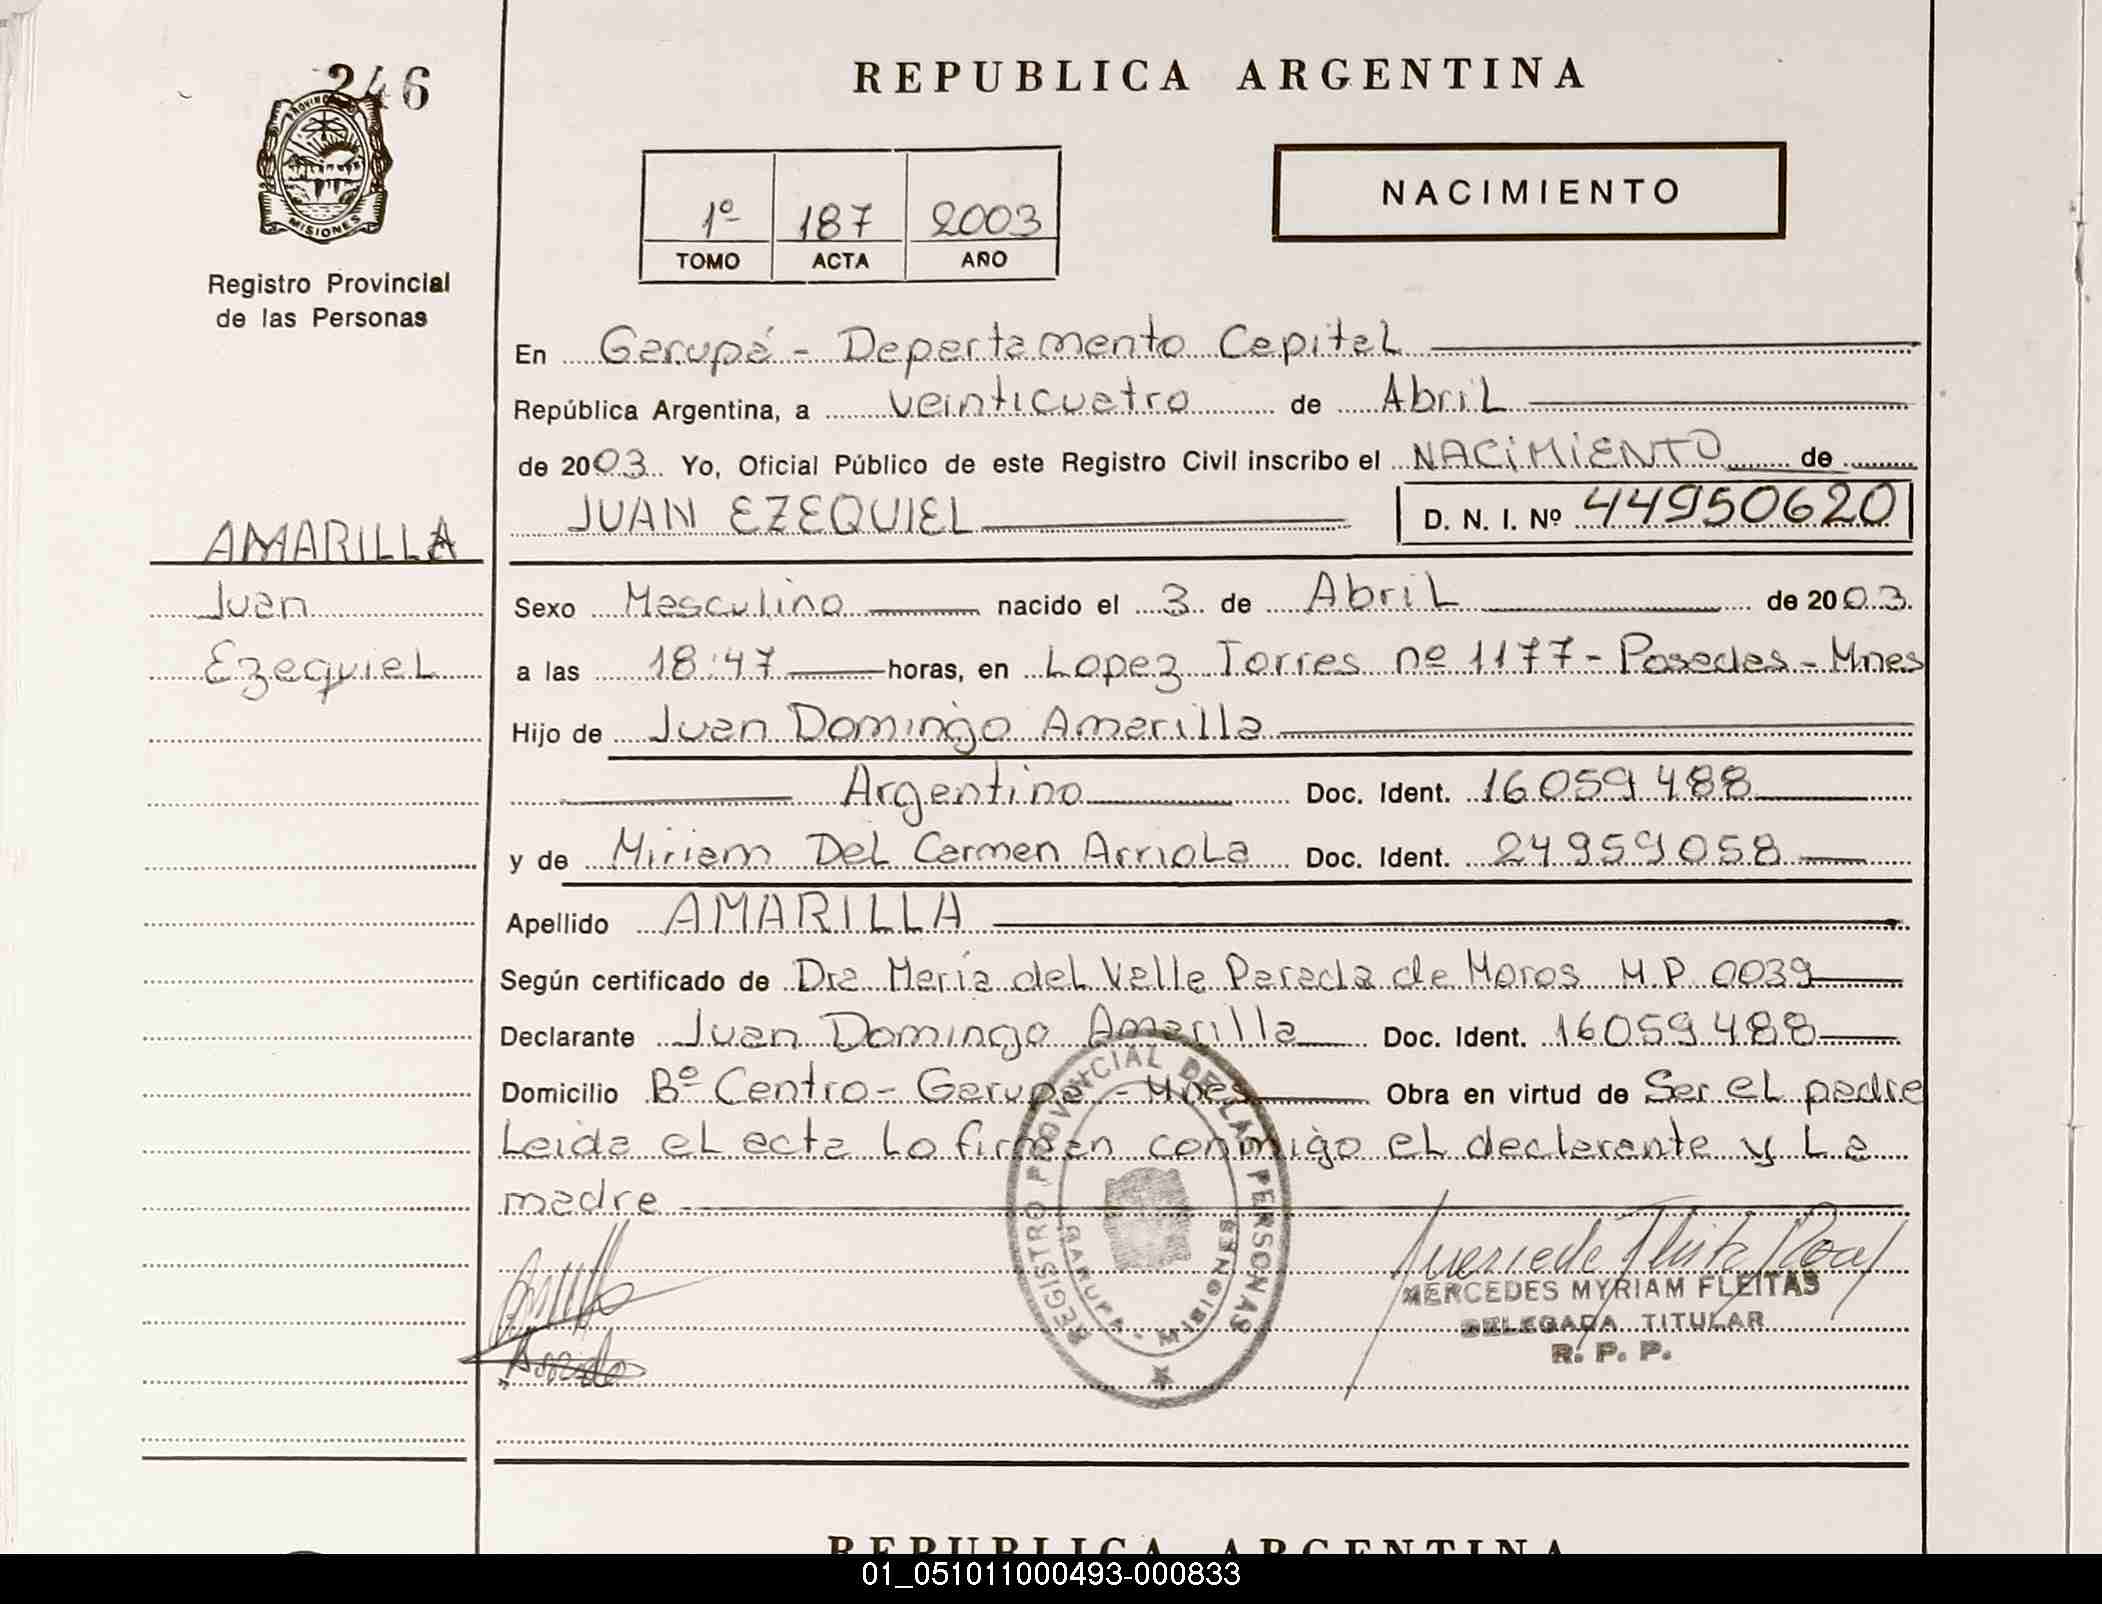 246
PROVINCIA
MISIONES
Registro Provincial
de las Personas
REPUBLICA ARGENTINA
1º 187 2003
TOMO ACTA AÑO
NACIMIENTO
En Garupá - Departamento Capital
República Argentina, a veinticuatro de Abril
de 2003 Yo, Oficial Público de este Registro Civil inscribo el NACIMIENTO de
JUAN EZEQUIEL D. N. I. Nº 44950620
AMARILLA
Juan
Ezequiel
Sexo Masculino nacido el 3 de Abril de 2003.
a las 18:47 horas, en Lopez Torres nº 1177 - Posadas - Mnes
Hijo de Juan Domingo Amarilla
Argentino Doc. Ident. 16059488
y de Miriam Del Carmen Arriola Doc. Ident. 24959058
Apellido AMARILLA
Según certificado de Dra María del Valle Parada de Moros M.P. 0039
Declarante Juan Domingo Amarilla Doc. Ident. 16059488
Domicilio Bº Centro - Garupa - Mnes Obra en virtud de Ser el padre
Leida el acta lo firman conmigo el declarante y la
madre
REGISTRO PROVINCIAL DE LAS PERSONAS
GARUPA - MISIONES
MERCEDES MYRIAM FLEITAS
DELEGADA TITULAR
R. P. P.
REPUBLICA ARGENTINA
01_051011000493-000833